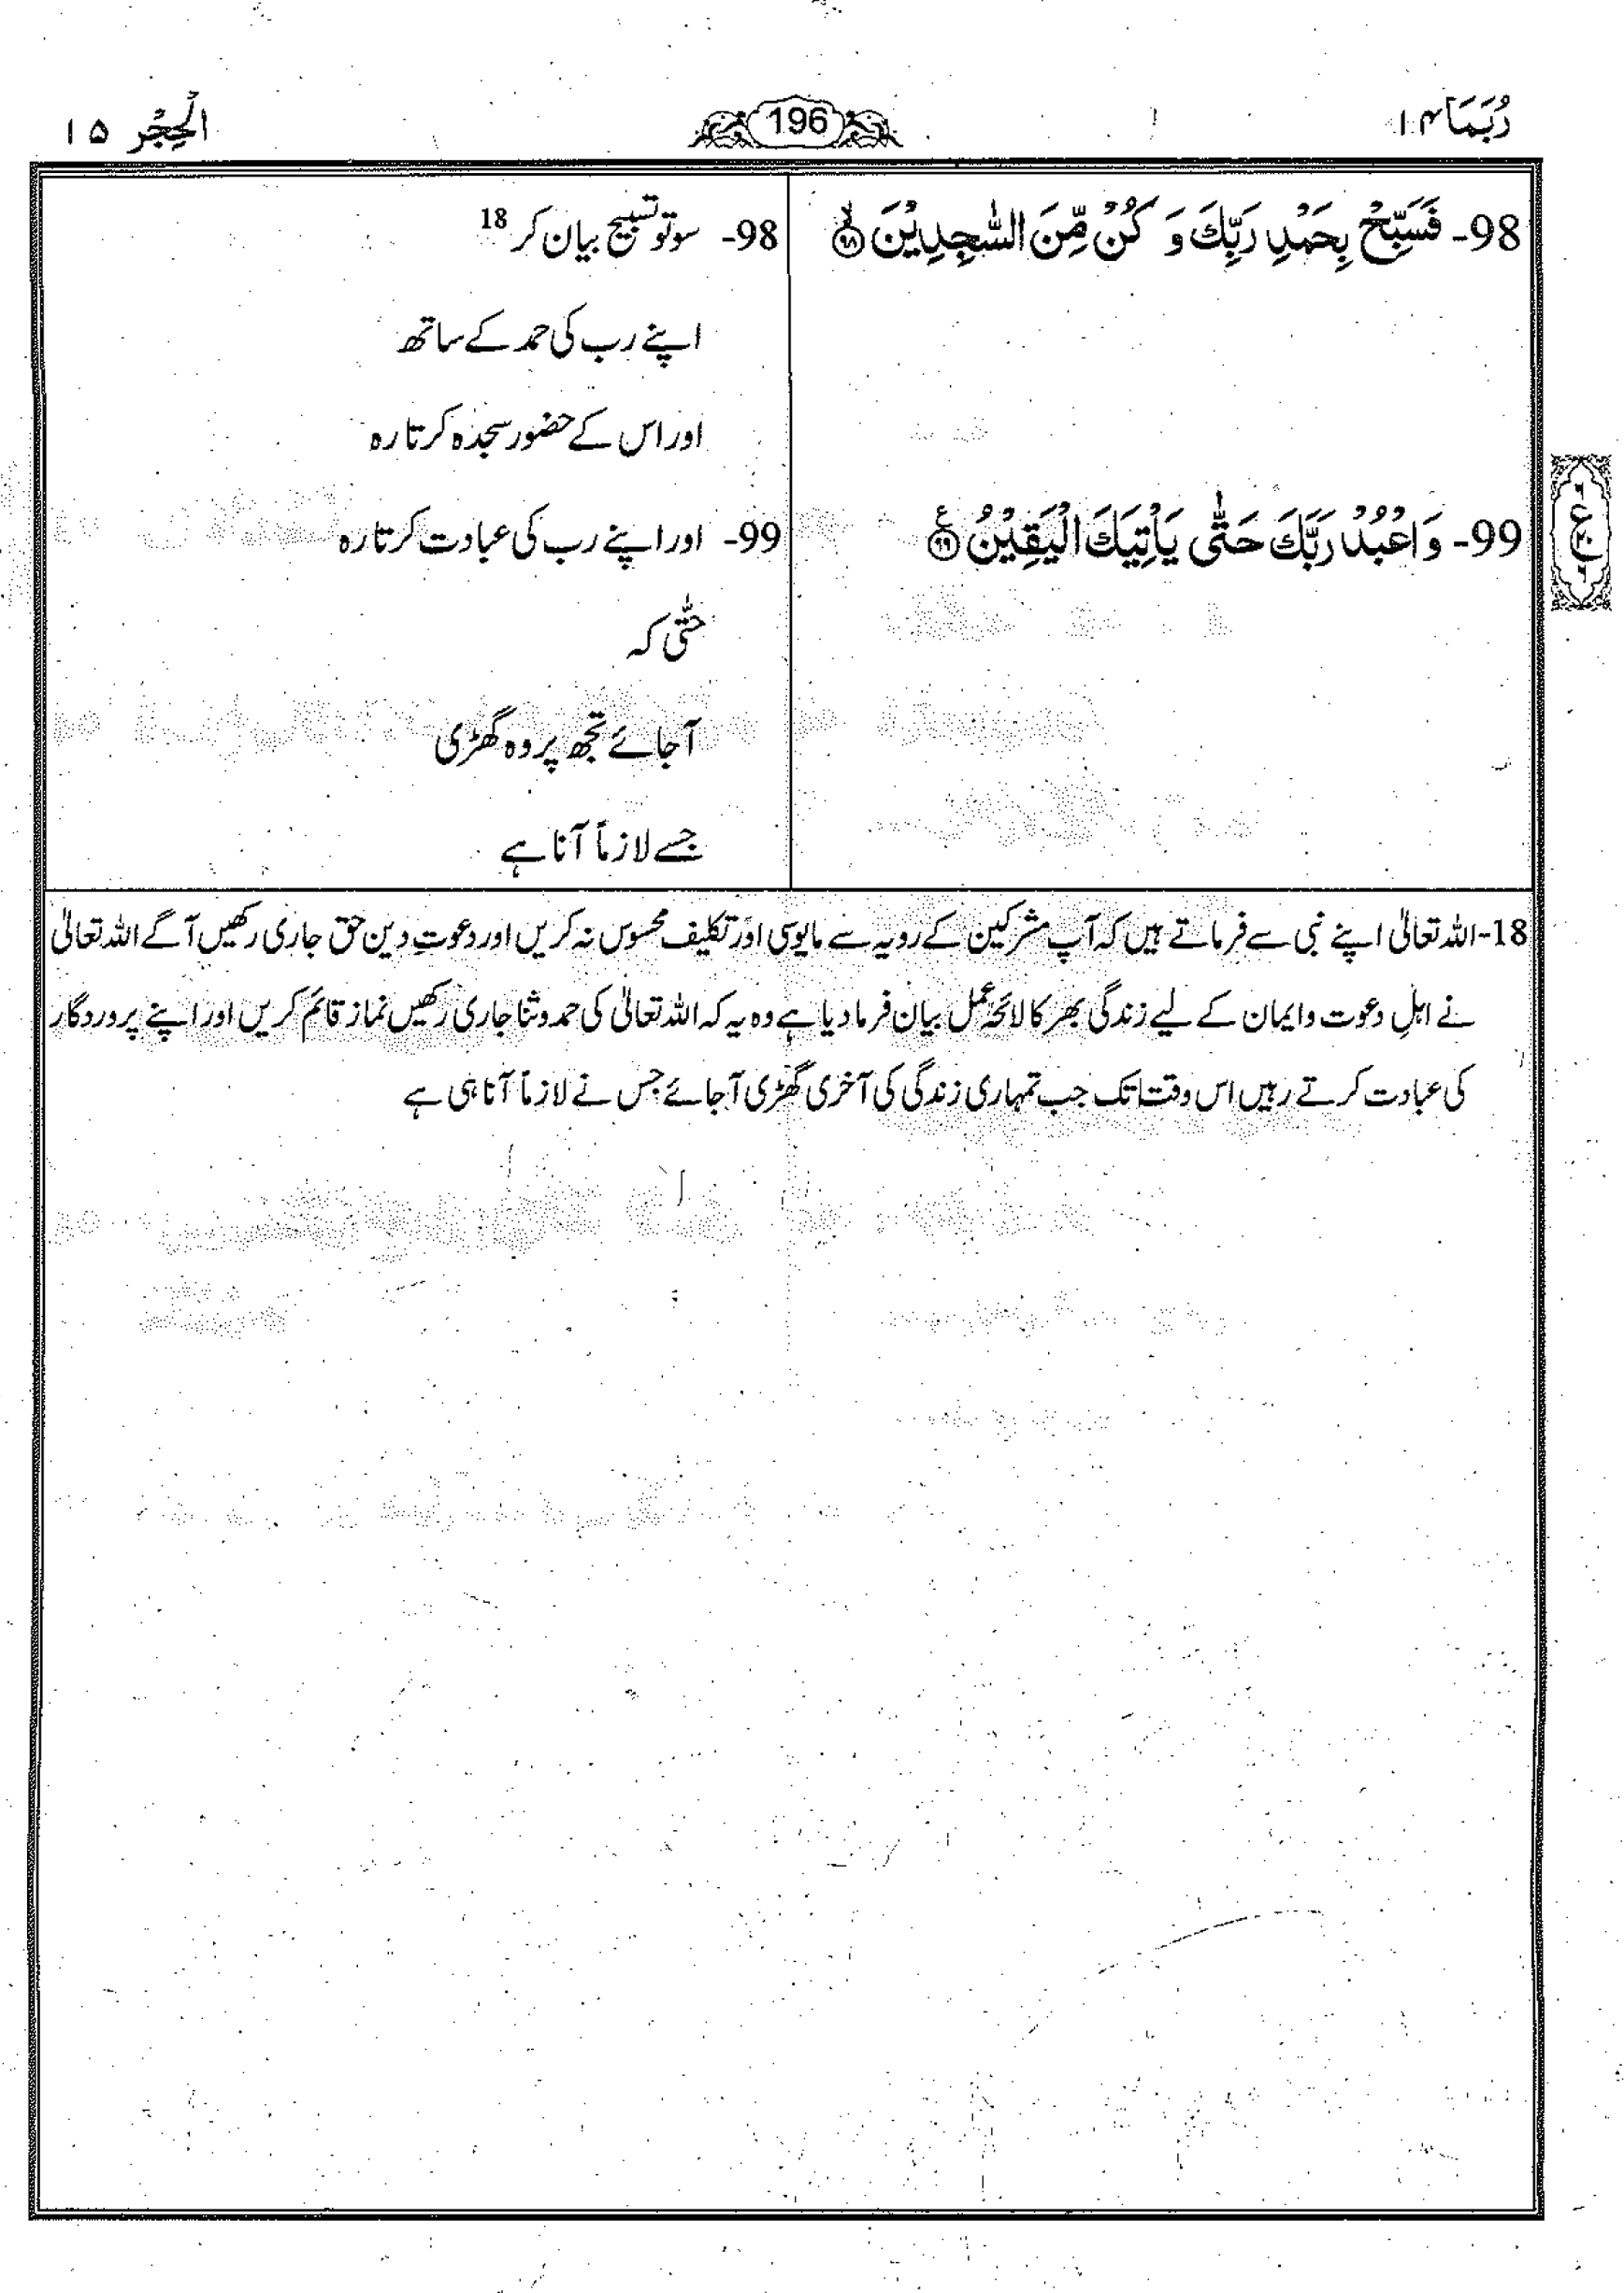 رُبَمَا ۱۴
196
الْحِجْر ۱۵
98- فَسَبِّحْ بِحَمْدِ رَبِّكَ وَ كُنْ مِّنَ السّٰجِدِيْنَ ۙ﴿۹۸﴾
98- سو تو تسبیح بیان کر 18
اپنے رب کی حمد کے ساتھ
اور اس کے حضور سجدہ کرتا رہ
99- وَ اعْبُدْ رَبَّكَ حَتّٰى يَاْتِيَكَ الْيَقِيْنُ ﴿۹۹﴾ۧ
99- اور اپنے رب کی عبادت کرتا رہ
حتّٰی کہ
آ جائے تجھ پر وہ گھڑی
جسے لازماً آنا ہے
ع
18- اللہ تعالیٰ اپنے نبی سے فرماتے ہیں کہ آپ مشرکین کے رویہ سے مایوسی اور تکلیف محسوس نہ کریں اور دعوتِ دین حق جاری رکھیں آگے اللہ تعالیٰ
نے اہلِ دعوت و ایمان کے لیے زندگی بھر کا لائحۂ عمل بیان فرما دیا ہے وہ یہ کہ اللہ تعالیٰ کی حمد و ثنا جاری رکھیں نماز قائم کریں اور اپنے پروردگار
کی عبادت کرتے رہیں اس وقت تک جب تمہاری زندگی کی آخری گھڑی آ جائے جس نے لازماً آنا ہی ہے